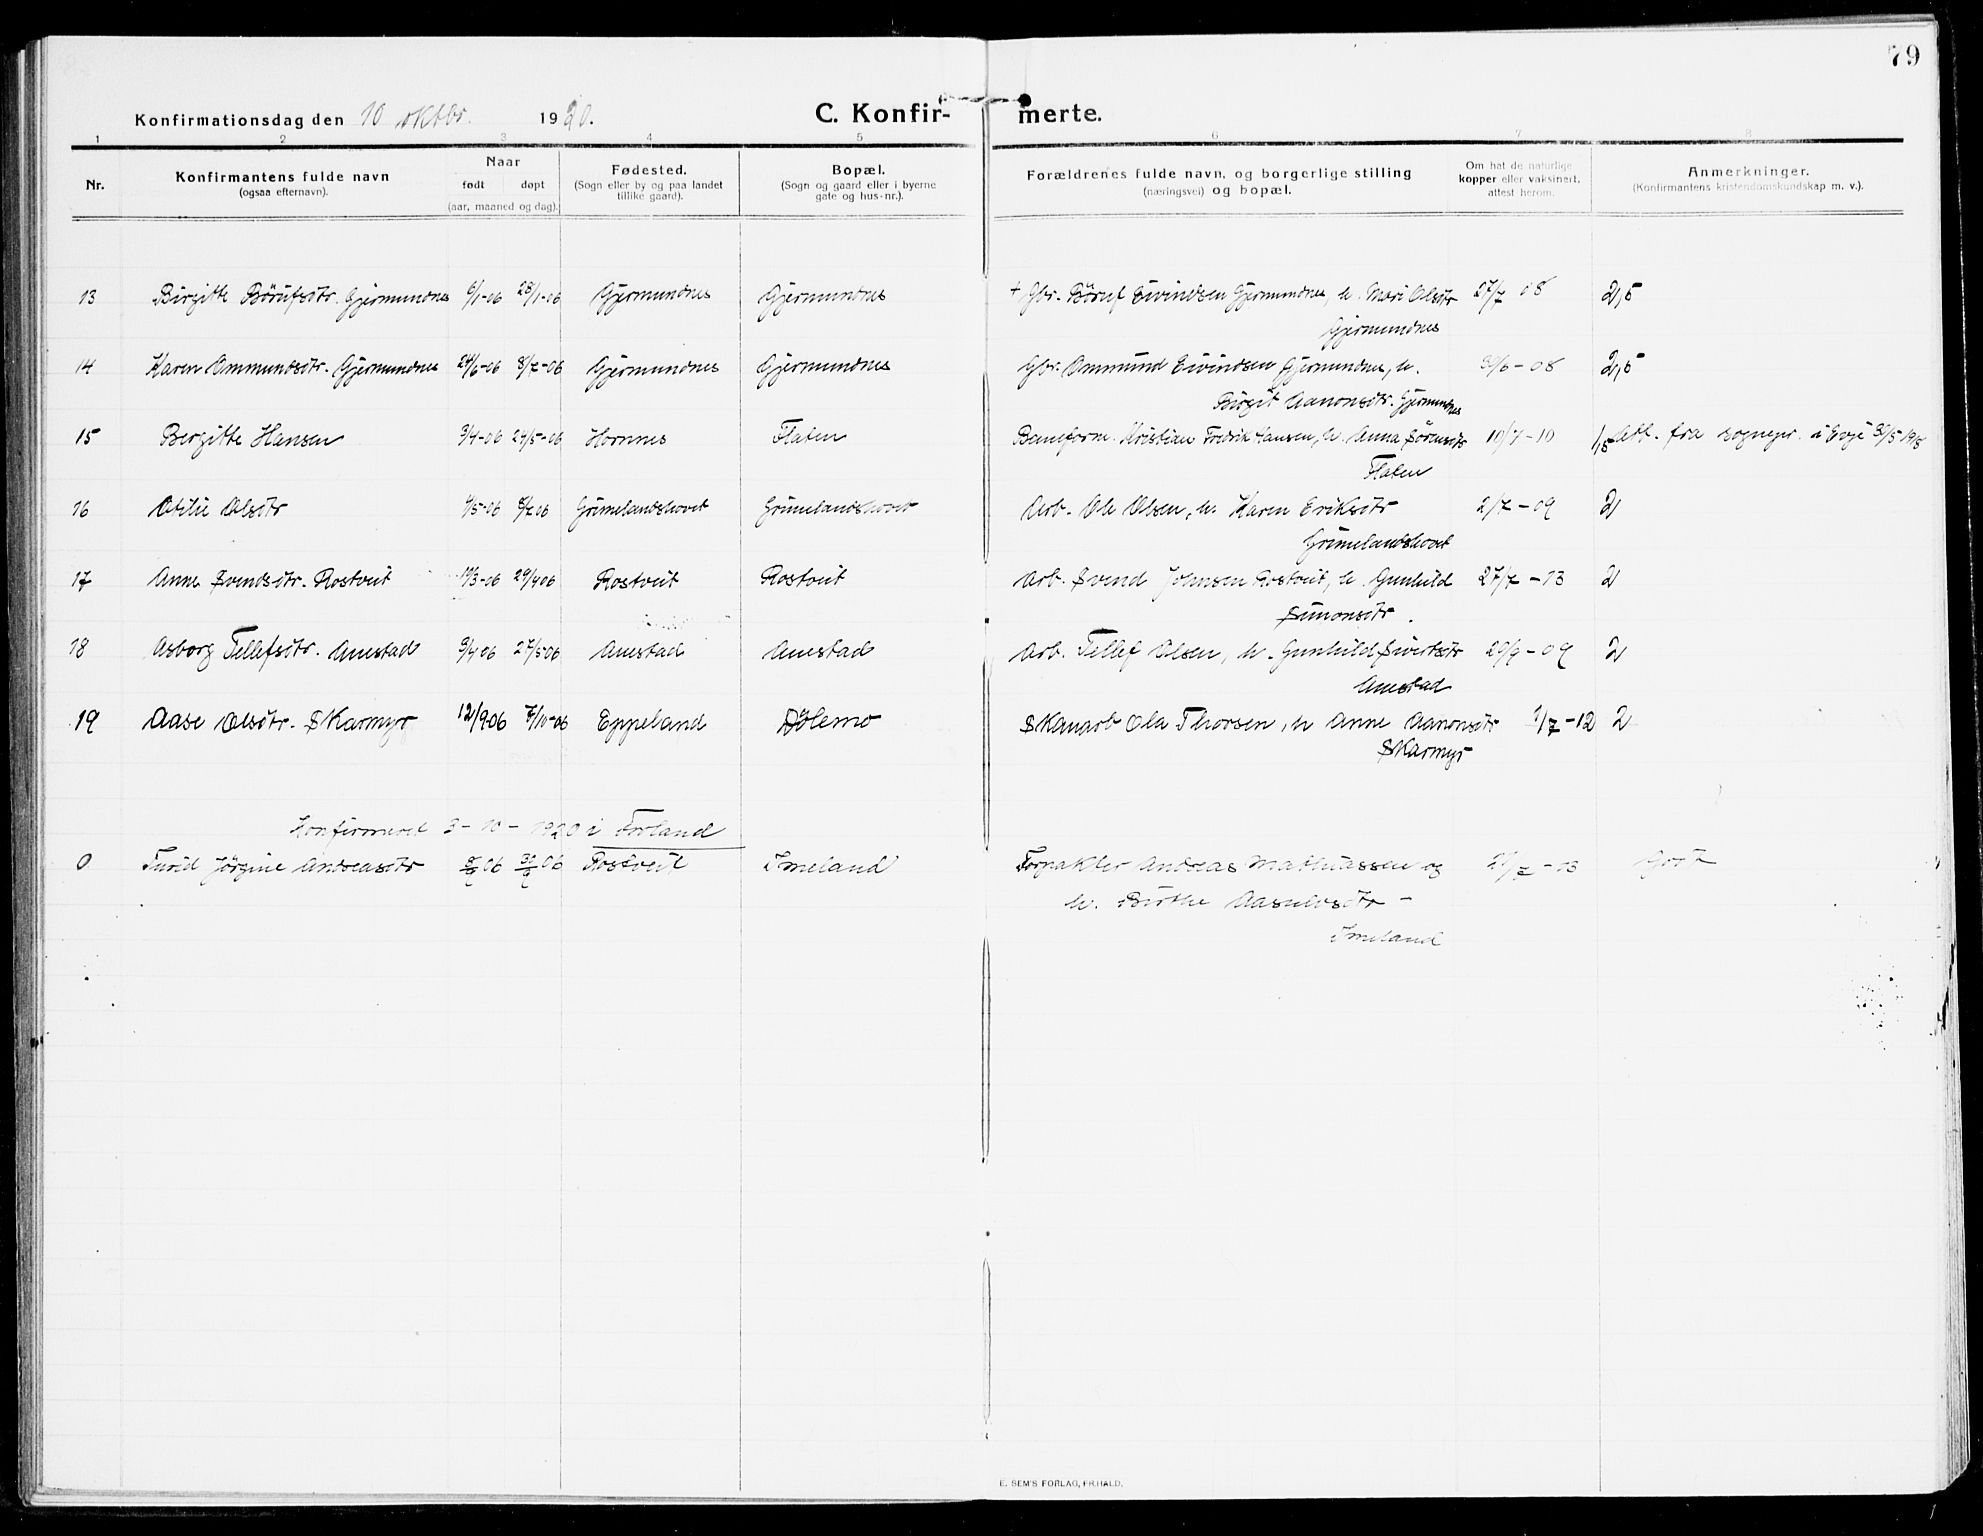 79
Konfirmationsdag den 10 oktbr. 1920.
C. Konfirmerte.
1 2 3 4 5 6 7 8
Nr.
Konfirmantens fulde navn
(ogsaa efternavn).
Naar
født døpt
(aar, maaned og dag).
Fødested.
(Sogn eller by og paa landet
tillike gaard).
Bopæl.
(Sogn og gaard eller i byerne
gate og hus-nr.).
Forældrenes fulde navn, og borgerlige stilling
(næringsvei) og bopæl.
Om hat de naturlige
kopper eller vaksinert,
attest herom.
Anmerkninger.
(Konfirmantens kristendomskundskap m. v.).
13 Birgitte Børufsdtr. Gjermundnes 6/1-06 28/1-06 Gjermundnes Gjermundnes + Gbr. Børuf Eivindsen Gjermundnes, h. Mari Olsdtr 27/7 08 2,5
Gjermundnes
14 Karen Ommundsdtr. Gjermundnes 24/6-06 8/7-06 Gjermundnes Gjermundnes Gbr. Ommund Eivindsen Gjermundnes, h. /6-08 2,5
Birgit Aanonsdtr. Gjermundnes
15 Bergitte Hansen 3/4-06 24/5-06 Hornnes Flaten Baneform. Kristian Fredrik Hansen, h. Anna Sørensdtr 10/7-10 1,5 Att. fra sognepr. i Evje
Flaten
16 Otilie Olsdtr /5-06 8/7 06 Grimelandshovet Grimelandshovet Arb. Ole Olsen, h. Karen Eriksdtr 2/7-09 2
Grimelandshovet
17 Anne Svendsdtr. Rostveit /3-06 29/4 06 Rostveit Rostveit Arb. Svend Johnsen Rostveit, h. Gunhild 27/7-13 2
Simonsdtr.
18 Asborg Tellefsdtr. Aunestad /4 06 27/5 06 Aunestad Aunestad Arb. Tellef Olsen, h. Gunhild Sivertsdtr 29/9-09 2
Aunestad
19 Aase Olsdtr. Skarmyr 12/9 06 7/10-06 Eppeland Dølemo Skauarb Ola Thorsen, h Anne Aanonsdtr 1/7-12 2
Skarmyr
Konfirmeret 3-10-1920 i Forland
0 Turid Jørgine Andreasdtr 06 06 Rostveit Imeland Forpakter Andreas Mathiassen og /7-13 Godt
h. Birthe Aasulvsdtr -
Imeland
E. SEM'S FORLAG, FR.HALD.